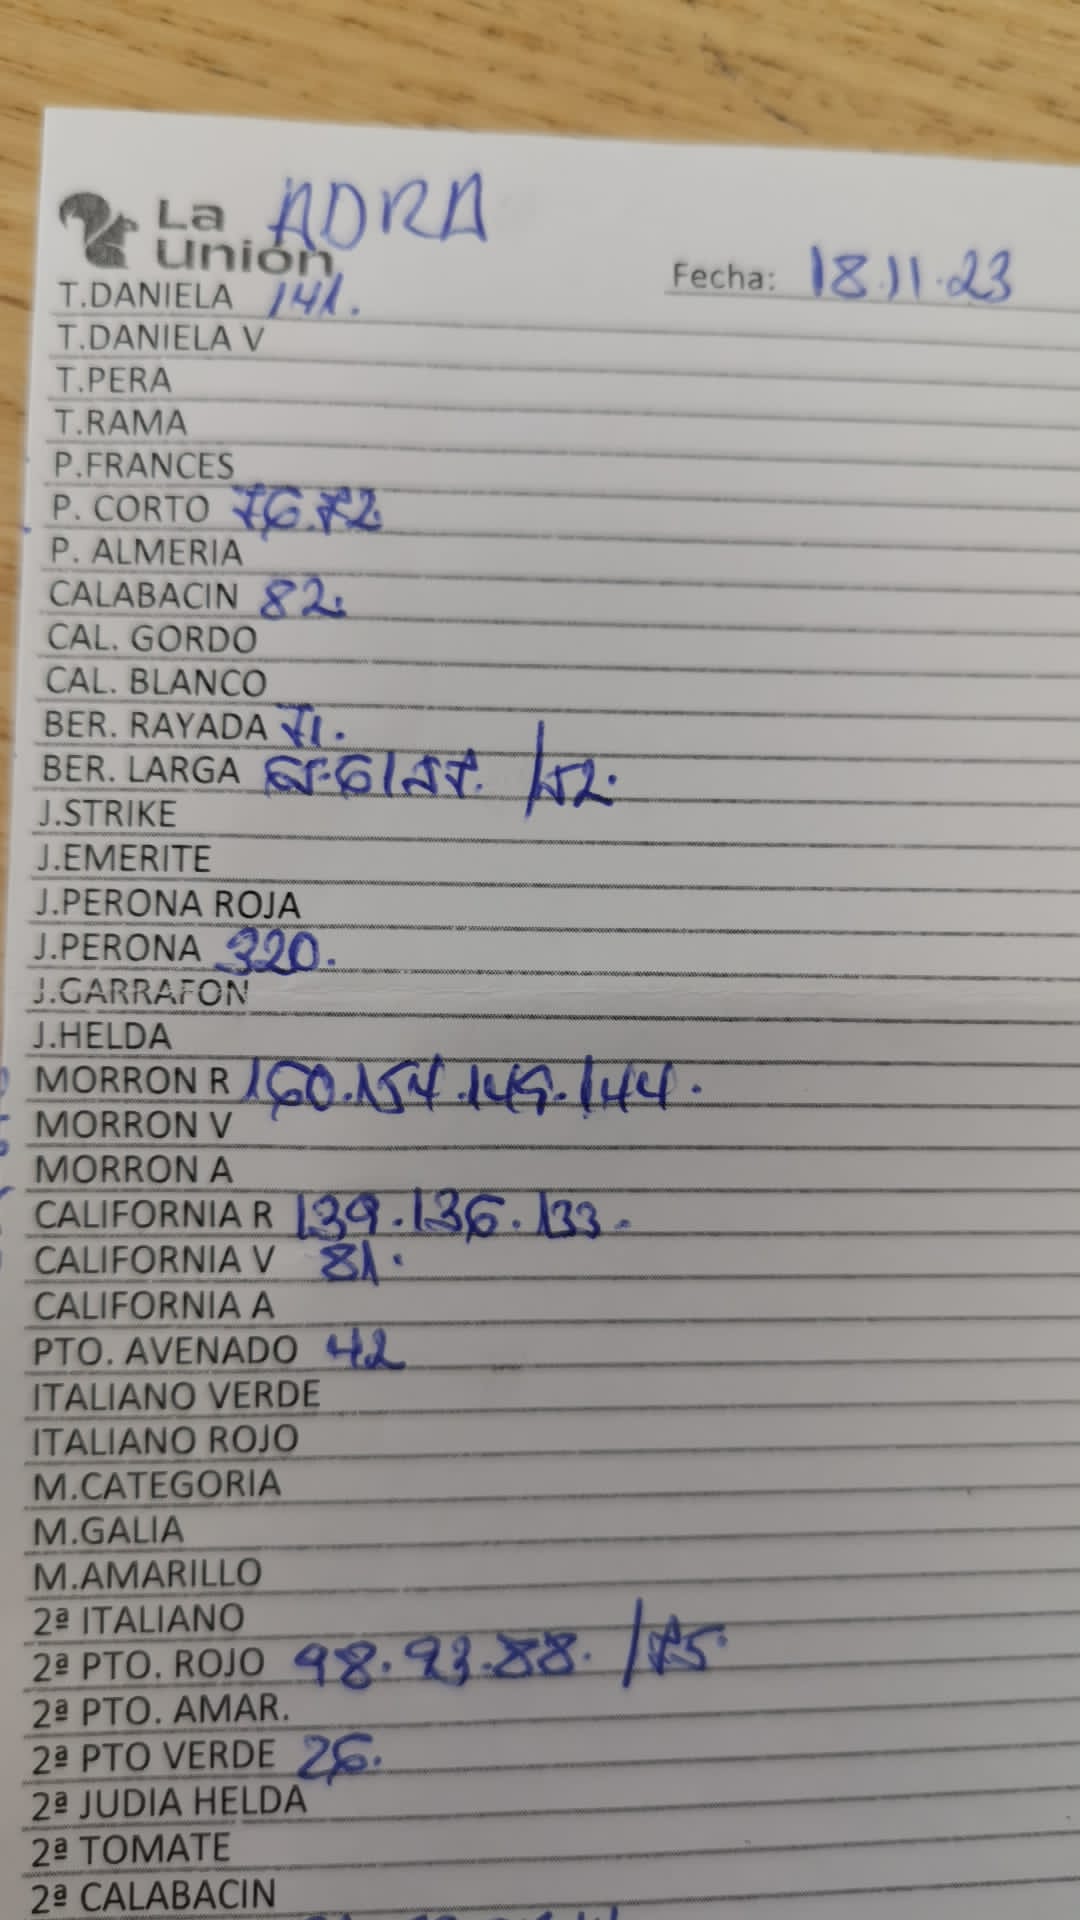 La Unión ADRA
Fecha: 18.11.23
T.DANIELA 141.
T.DANIELA V
T.PERA
T.RAMA
P.FRANCES
P. CORTO 76.72.
P. ALMERIA
CALABACIN 82.
CAL. GORDO
CAL. BLANCO
BER. RAYADA 71.
BER. LARGA 65.61.57. /52.
J.STRIKE
J.EMERITE
J.PERONA ROJA
J.PERONA 320.
J.GARRAFON
J.HELDA
MORRON R 160.154.149.144.
MORRON V
MORRON A
CALIFORNIA R 139.136.133.
CALIFORNIA V 81.
CALIFORNIA A
PTO. AVENADO 42
ITALIANO VERDE
ITALIANO ROJO
M.CATEGORIA
M.GALIA
M.AMARILLO
2ª ITALIANO
2ª PTO. ROJO 98.93.88. /75.
2ª PTO. AMAR.
2ª PTO VERDE 26.
2ª JUDIA HELDA
2ª TOMATE
2ª CALABACIN